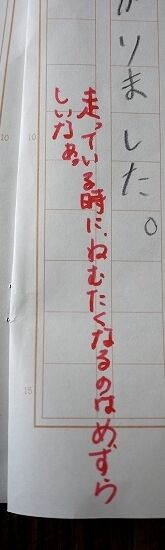 がりました。
走っている時に、ねむたくなるのはめずら
しいなあ。
10
10
15